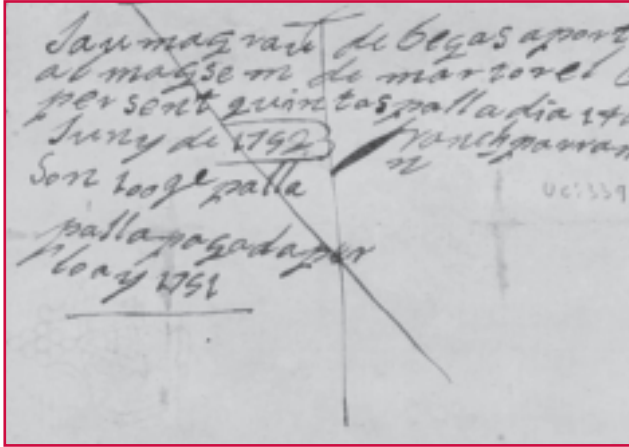 Jaumagrau de begas aport
al magsem de martorel
per sent quintas palla dia 14
Juny de 1752 Franch parran
Son 100 qe palla
palla pagada per
loay 1751